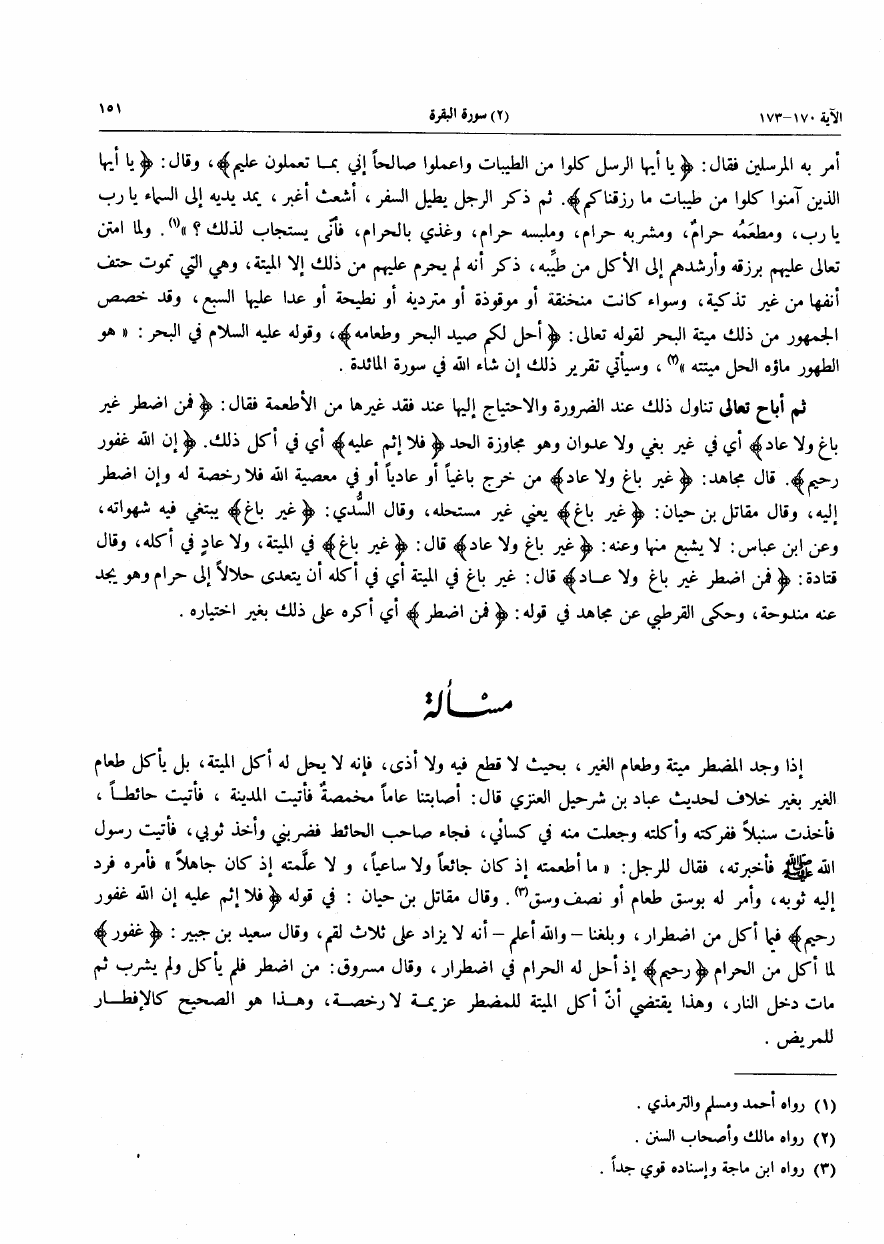 الآية ١٧٠-١٧٣
(٢) سورة البقرة
١٥١
أمر به المرسلين فقال: ﴿ يا أيها الرسل كلوا من الطيبات واعملوا صالحاً إني بمـا تعملون عليم﴾، وقال: ﴿ يا أيها
الذين آمنوا كلوا من طيبات ما رزقناكم﴾. ثم ذكر الرجل يطيل السفر ، أشعث أغبر ، يمد يديه إلى السماء يا رب
يا رب، ومطعَمُه حرامٌ، ومشربه حرام، وملبسه حرام، وغذي بالحرام، فأنّى يستجاب لذلك ؟ »(١). ولما امتن
تعالى عليهم برزقه وأرشدهم إلى الأكل من طيِّبه، ذكر أنه لم يحرم عليهم من ذلك إلا الميتة، وهي التي تموت حتف
أنفها من غير تذكية، وسواء كانت منخنقة أو موقوذة أو متردية أو نطيحة أو عدا عليها السبع، وقد خصص
الجمهور من ذلك ميتة البحر لقوله تعالى: ﴿ أحل لكم صيد البحر وطعامه﴾، وقوله عليه السلام في البحر: « هو
الطهور ماؤه الحل ميتته »(٢) ، وسيأتي تقرير ذلك إن شاء الله في سورة المائدة .
ثم أباح تعالى تناول ذلك عند الضرورة والاحتياج إليها عند فقد غيرها من الأطعمة فقال: ﴿ فمن اضطر غير
باغ ولا عاد﴾ أي في غير بغي ولا عدوان وهو مجاوزة الحد ﴿ فلا إثم عليه﴾ أي في أكل ذلك. ﴿ إن الله غفور
رحيم﴾. قال مجاهد: ﴿ غير باغ ولا عاد﴾ من خرج باغياً أو عادياً أو في معصية الله فلا رخصة له وإن اضطر
إليه، وقال مقاتل بن حيان: ﴿ غير باغ﴾ يعني غير مستحله، وقال السُّدي: ﴿ غير باغ﴾ يبتغي فيه شهواته،
وعن ابن عباس: لا يشبع منها وعنه: ﴿ غير باغ ولا عاد﴾ قال: ﴿ غير باغ﴾ في الميتة، ولا عادٍ في أكله، وقال
قتادة: ﴿ فمن اضطر غير باغ ولا عـاد﴾ قال: غير باغ في الميتة أي في أكله أن يتعدى حلالاً إلى حرام وهو يجد
عنه مندوحة، وحكى القرطبي عن مجاهد في قوله: ﴿ فمن اضطر ﴾ أي أكره على ذلك بغير اختياره .
مسْـألة
إذا وجد المضطر ميتة وطعام الغير ، بحيث لا قطع فيه ولا أذى، فإنه لا يحل له أكل الميتة، بل يأكل طعام
الغير بغير خلاف لحديث عباد بن شرحيل العنزي قال: أصابتنا عاماً مخمصةٌ فأتيت المدينة ، فأتيت حائطـاً ،
فأخذت سنبلاً ففركته وأكلته وجعلت منه في كسائي، فجاء صاحب الحائط فضربني وأخذ ثوبي، فأتيت رسول
الله ﷺ فأخبرته، فقال للرجل: « ما أطعمته إذ كان جائعاً ولا ساعياً، و لا علَّمته إذ كان جاهلاً » فأمره فرد
إليه ثوبه، وأمر له بوسق طعام أو نصف وسق(٣). وقال مقاتل بن حيان : في قوله ﴿ فلا إثم عليه إن الله غفور
رحيم﴾ فيما أكل من اضطرار ، وبلغنا - والله أعلم - أنه لا يزاد على ثلاث لقم، وقال سعيد بن جبير : ﴿ غفور ﴾
لما أكل من الحرام ﴿ رحيم﴾ إذ أحل له الحرام في اضطرار ، وقال مسروق: من اضطر فلم يأكل ولم يشرب ثم
مات دخل النار ، وهذا يقتضي أنّ أكل الميتة للمضطر عزيمـة لا رخصـة، وهـذا هو الصحيح كالإفطـار
للمريض .
(١) رواه أحمد ومسلم والترمذي .
(٢) رواه مالك وأصحاب السنن .
(٣) رواه ابن ماجة وإسناده قوي جداً .